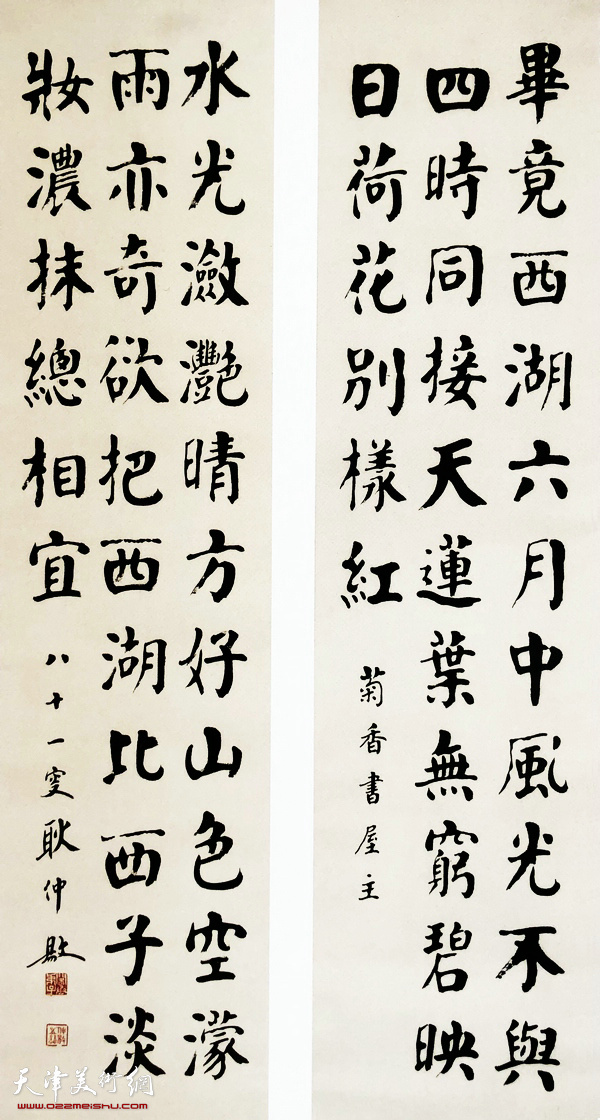 畢竟西湖六月中風光不與
四時同接天蓮葉無窮碧映
日荷花別樣紅
菊香書屋主
水光瀲灩晴方好山色空濛
雨亦奇欲把西湖比西子淡
妝濃抹總相宜
八十一叟耿仲敭
天津美術網
www.022meishu.com